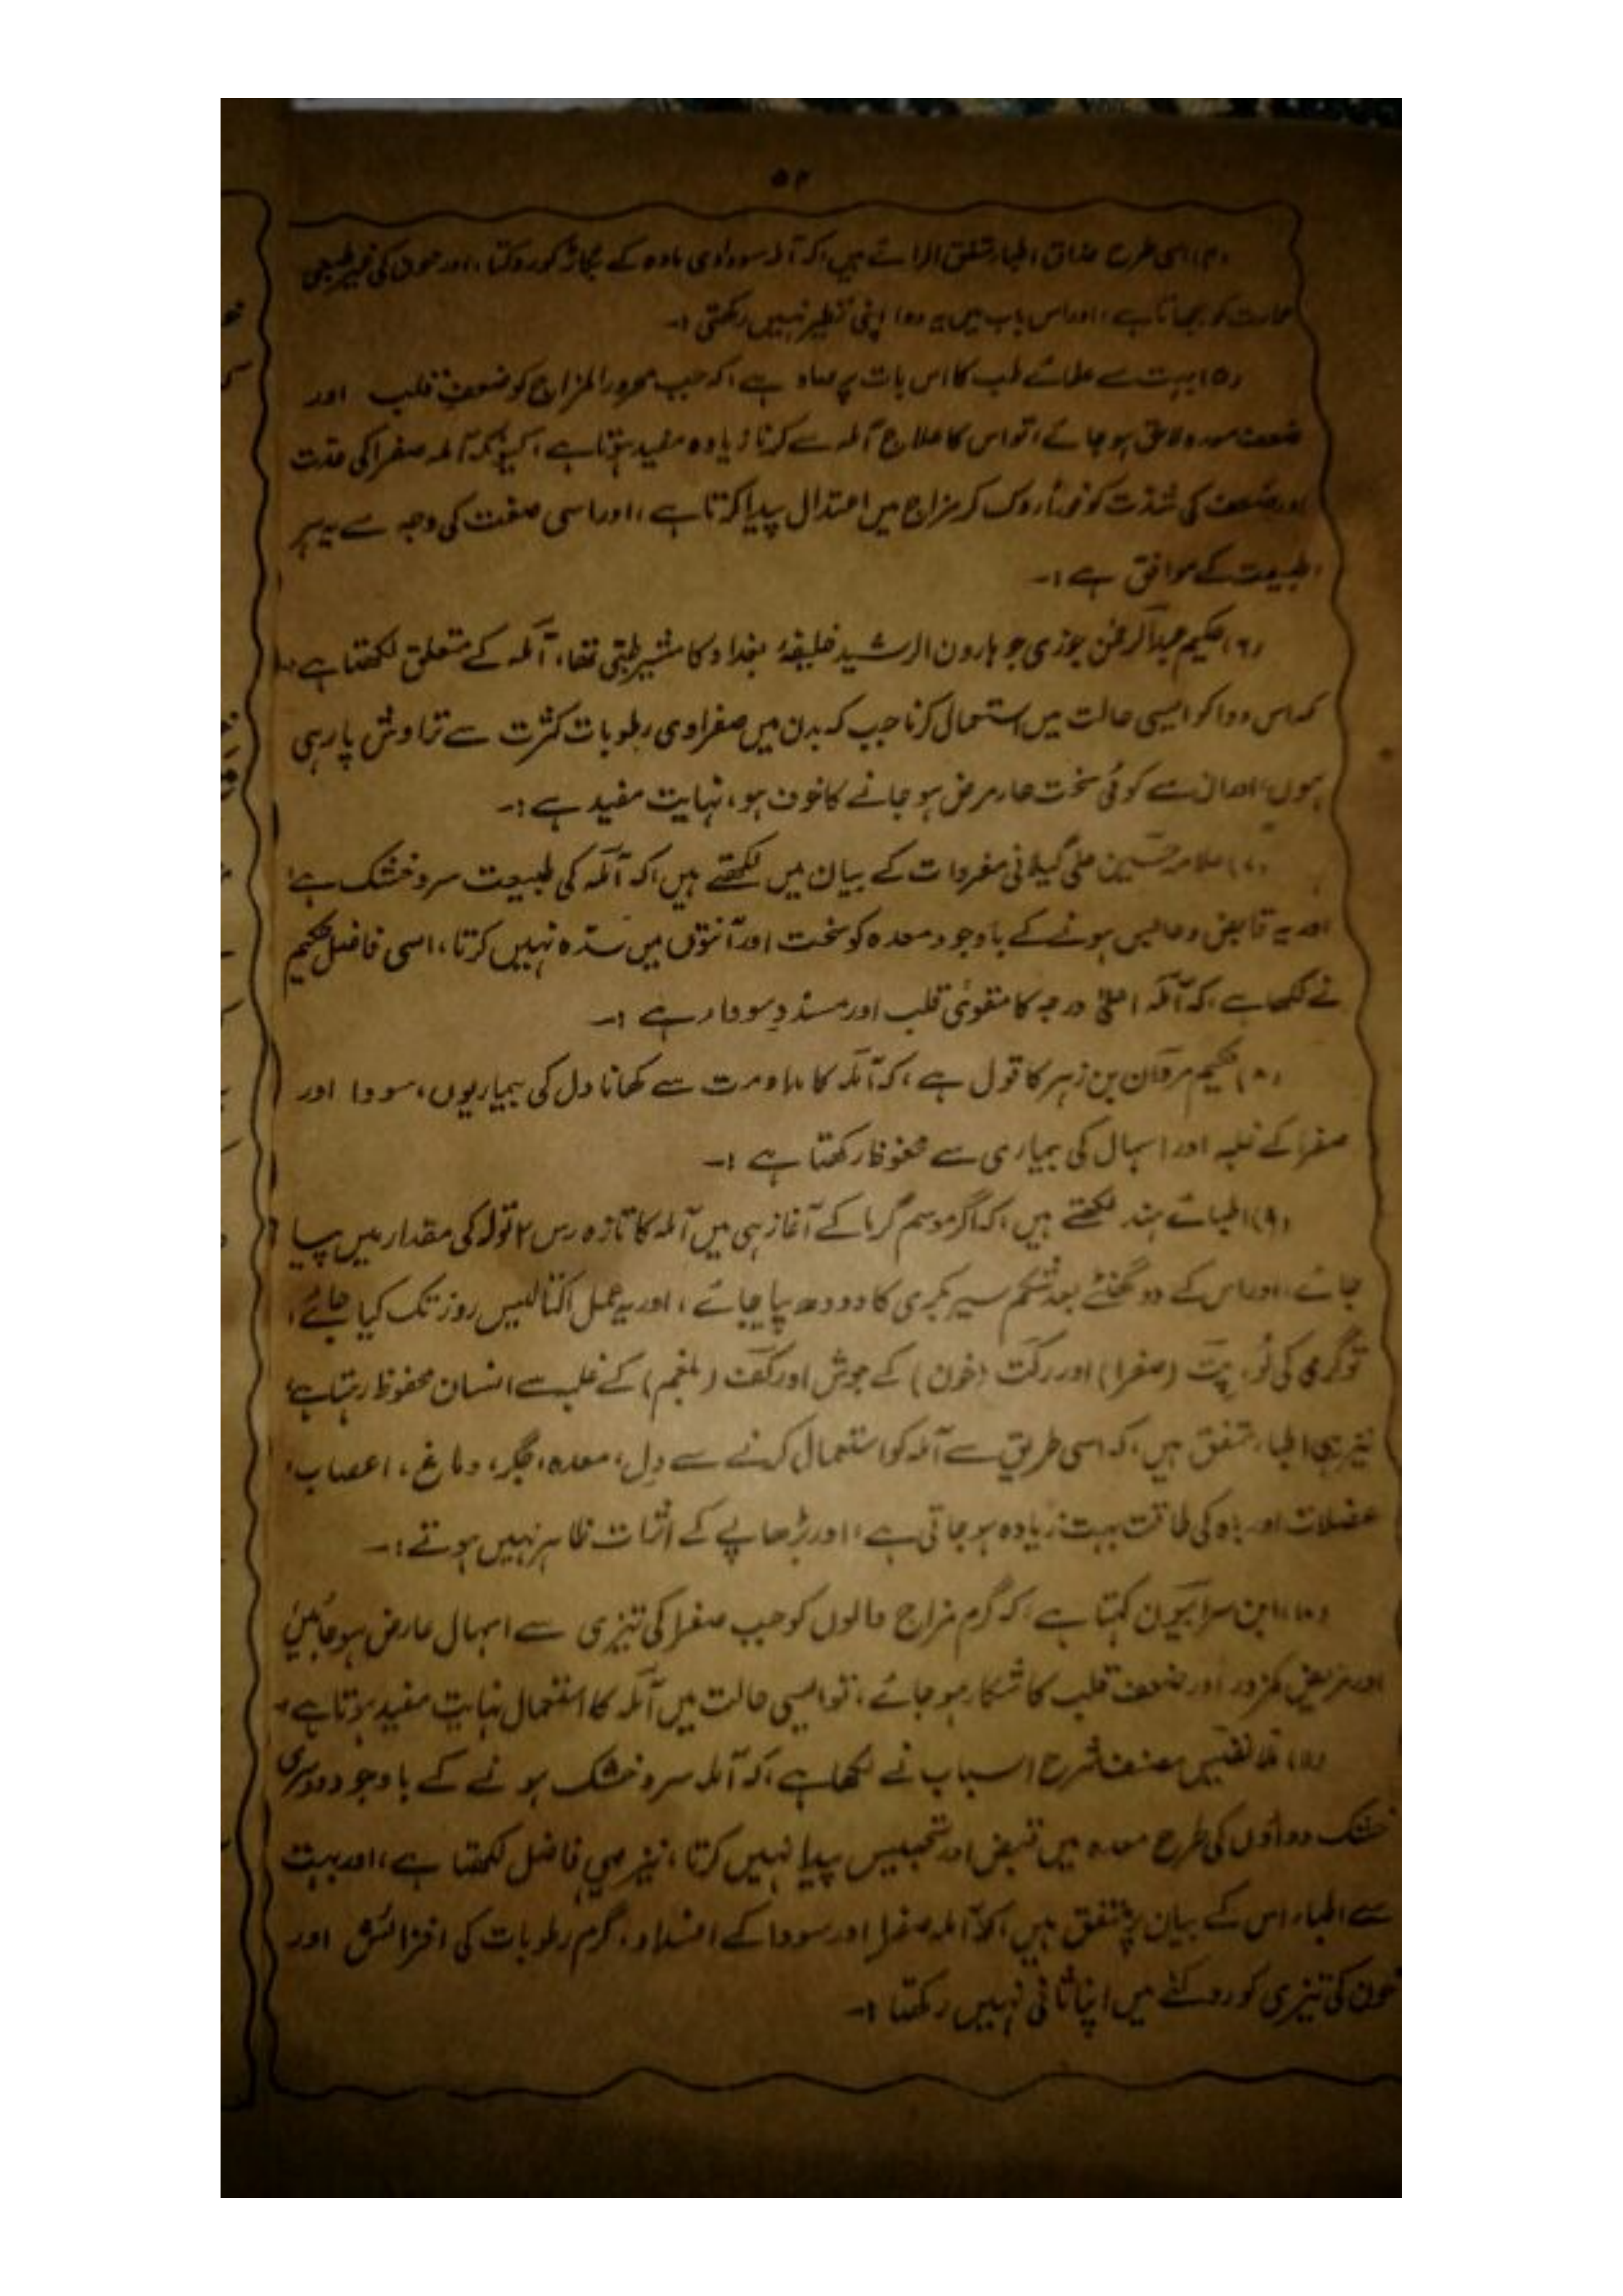 ۵۲
(۴) اسی طرح حذاق اطبار متفق الرائے ہیں، کہ آملہ سوداوی مادہ کے بگاڑ کو روکتا، اور خون کی غیر طبعی
حرارت کو بجھاتا ہے، اور اس باب میں یہ دوا اپنی نظیر نہیں رکھتی :-
(۵) بہت سے علمائے طب کا اس بات پر صاد ہے، کہ جب محرور المزاج کو ضعفِ قلب اور
ضعف معدہ لاحق ہو جائے، تو اس کا علاج آملہ سے کرنا زیادہ مفید ہوتا ہے، کیونکہ آملہ صفرا کی حدت
اور ضعف کی شدت کو فوراً روک کر مزاج میں اعتدال پیدا کرتا ہے، اور اسی صفت کی وجہ سے یہ ہر
طبیعت کے موافق ہے :-
(۶) حکیم عبدالرحمٰن جوزی جو ہارون الرشید خلیفۂ بغداد کا مشیر طبّی تھا، آملہ کے متعلق لکھتا ہے،
کہ اس دوا کو ایسی حالت میں استعمال کرنا جب کہ بدن میں صفراوی رطوبات کثرت سے تراوش پا رہی
ہوں، اور ان سے کوئی سخت حار مرض ہو جانے کا خوف ہو، نہایت مفید ہے :-
(۷) علامہ حسین علی گیلانی مفردات کے بیان میں لکھتے ہیں، کہ آملہ کی طبیعت سرد خشک ہے،
اور یہ قابض و حابس ہونے کے باوجود معدہ کو سخت اور آنتوں میں سدہ نہیں کرتا، اسی فاضل حکیم
نے لکھا ہے، کہ آملہ اعلیٰ درجہ کا مقویٔ قلب اور مسددِ سودار ہے :-
(۸) حکیم مروان بن زہر کا قول ہے، کہ آملہ کا مداومت سے کھانا دل کی بیماریوں، سودا اور
صفرا کے غلبہ اور اسہال کی بیماری سے محفوظ رکھتا ہے :-
(۹) اطبائے ہند لکھتے ہیں، کہ اگر موسم گرما کے آغاز ہی میں آملہ کا تازہ رس ۲ تولہ کی مقدار میں پیا
جائے، اور اس کے دو گھنٹے بعد شکم سیر بکری کا دودھ پیا جائے، اور یہ عمل اکتالیس روز تک کیا جائے،
تو گرمی کی لُو، پت (صفرا) اور رکت (خون) کے جوش اور کف (بلغم) کے غلبہ سے انسان محفوظ رہتا ہے،
نیز یہی اطبار متفق ہیں، کہ اسی طریق سے آملہ کو استعمال کرنے سے دل، معدہ، جگر، دماغ، اعصاب،
عضلات اور باہ کی طاقت بہت زیادہ ہو جاتی ہے، اور بڑھاپے کے اثرات ظاہر نہیں ہوتے :-
(۱۰) ابن سرابیون کہتا ہے، کہ گرم مزاج والوں کو جب صفرا کی تیزی سے اسہال عارض ہو جائیں
اور مریض کمزور اور ضعف قلب کا شکار ہو جائے، تو ایسی حالت میں آملہ کا استعمال نہایت مفید ہوتا ہے-
(۱۱) ملا نفیس مصنف شرح اسباب نے لکھا ہے، کہ آملہ سرد خشک ہونے کے باوجود دوسری
خشک دواؤں کی طرح معدہ میں قبض اور تحبیس پیدا نہیں کرتا، نیز یہی فاضل لکھتا ہے، اور بہت
سے اطبار اس کے بیان پر متفق ہیں، کہ آملہ صفرا اور سودا کے اشداد، گرم رطوبات کی افزائش اور
خون کی تیزی کو روکنے میں اپنا ثانی نہیں رکھتا :-